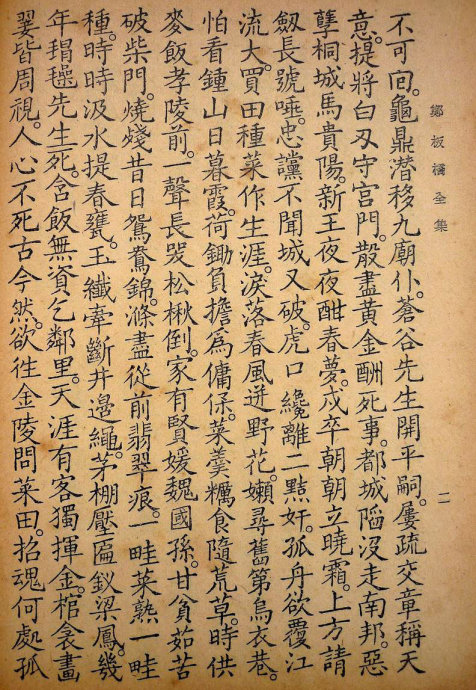 鄭板橋全集
二
不可向。龜鼎潛移九廟仆。蒼谷先生開平嗣。屢疏交章稱天
意。提將白刃守宮門。散盡黃金酬死事。都城陷沒走南邦。惡
孽桐城馬貴陽。新王夜夜酣春夢。戍卒朝朝立曉霜。上方請
劔長號唾。忠讜不聞城又破。虎口纔離二黠奸。孤舟欲覆江
流大。買田種菜作生涯。淚落春風迸野花。嬾尋舊第烏衣巷。
怕看鍾山日暮霞。荷鋤負擔爲傭保。菜羹糲食隨荒草。時供
麥飯孝陵前。一聲長哭松楸倒。家有賢媛魏國孫。甘貧茹苦
破柴門。燒殘昔日鴛鴦錦。滌盡從前翡翠痕。一畦菜熟一畦
種。時時汲水提春甕。玉纖牽斷井邊繩。茅棚壓匾釵梁鳳。幾
年毷氉先生死。含飯無資乞鄰里。天涯有客獨揮金。棺衾畫
翣皆周視。人心不死古今然。欲往金陵問菜田。招魂何處孤